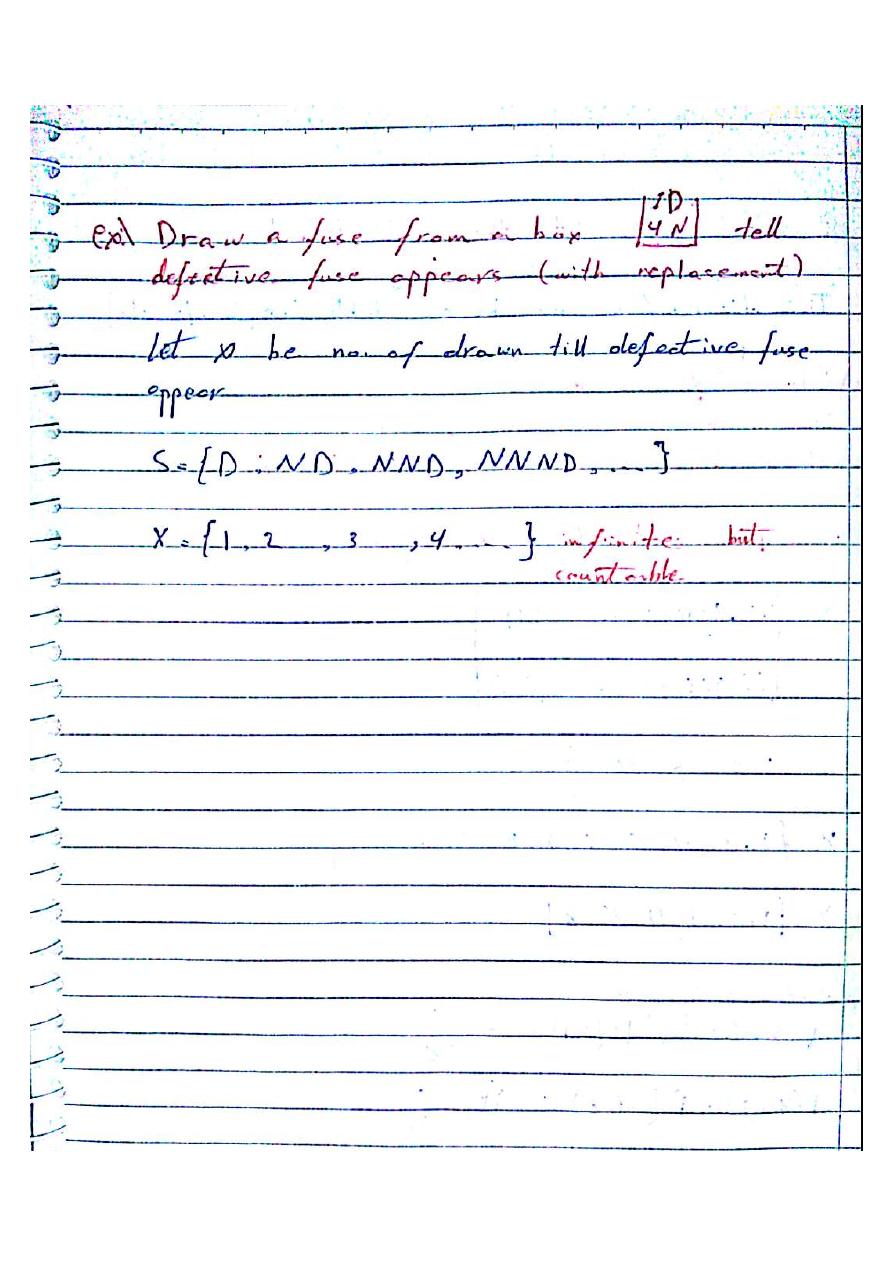 ex\ Draw a fuse from a box |1D 4N| tell
defective fuse appears (with replacement)
Let x be no. of drawn till defective fuse
appear
S = {D, ND, NND, NNND, ....}
X = {1, 2, 3, 4, ....} infinite but
countable.